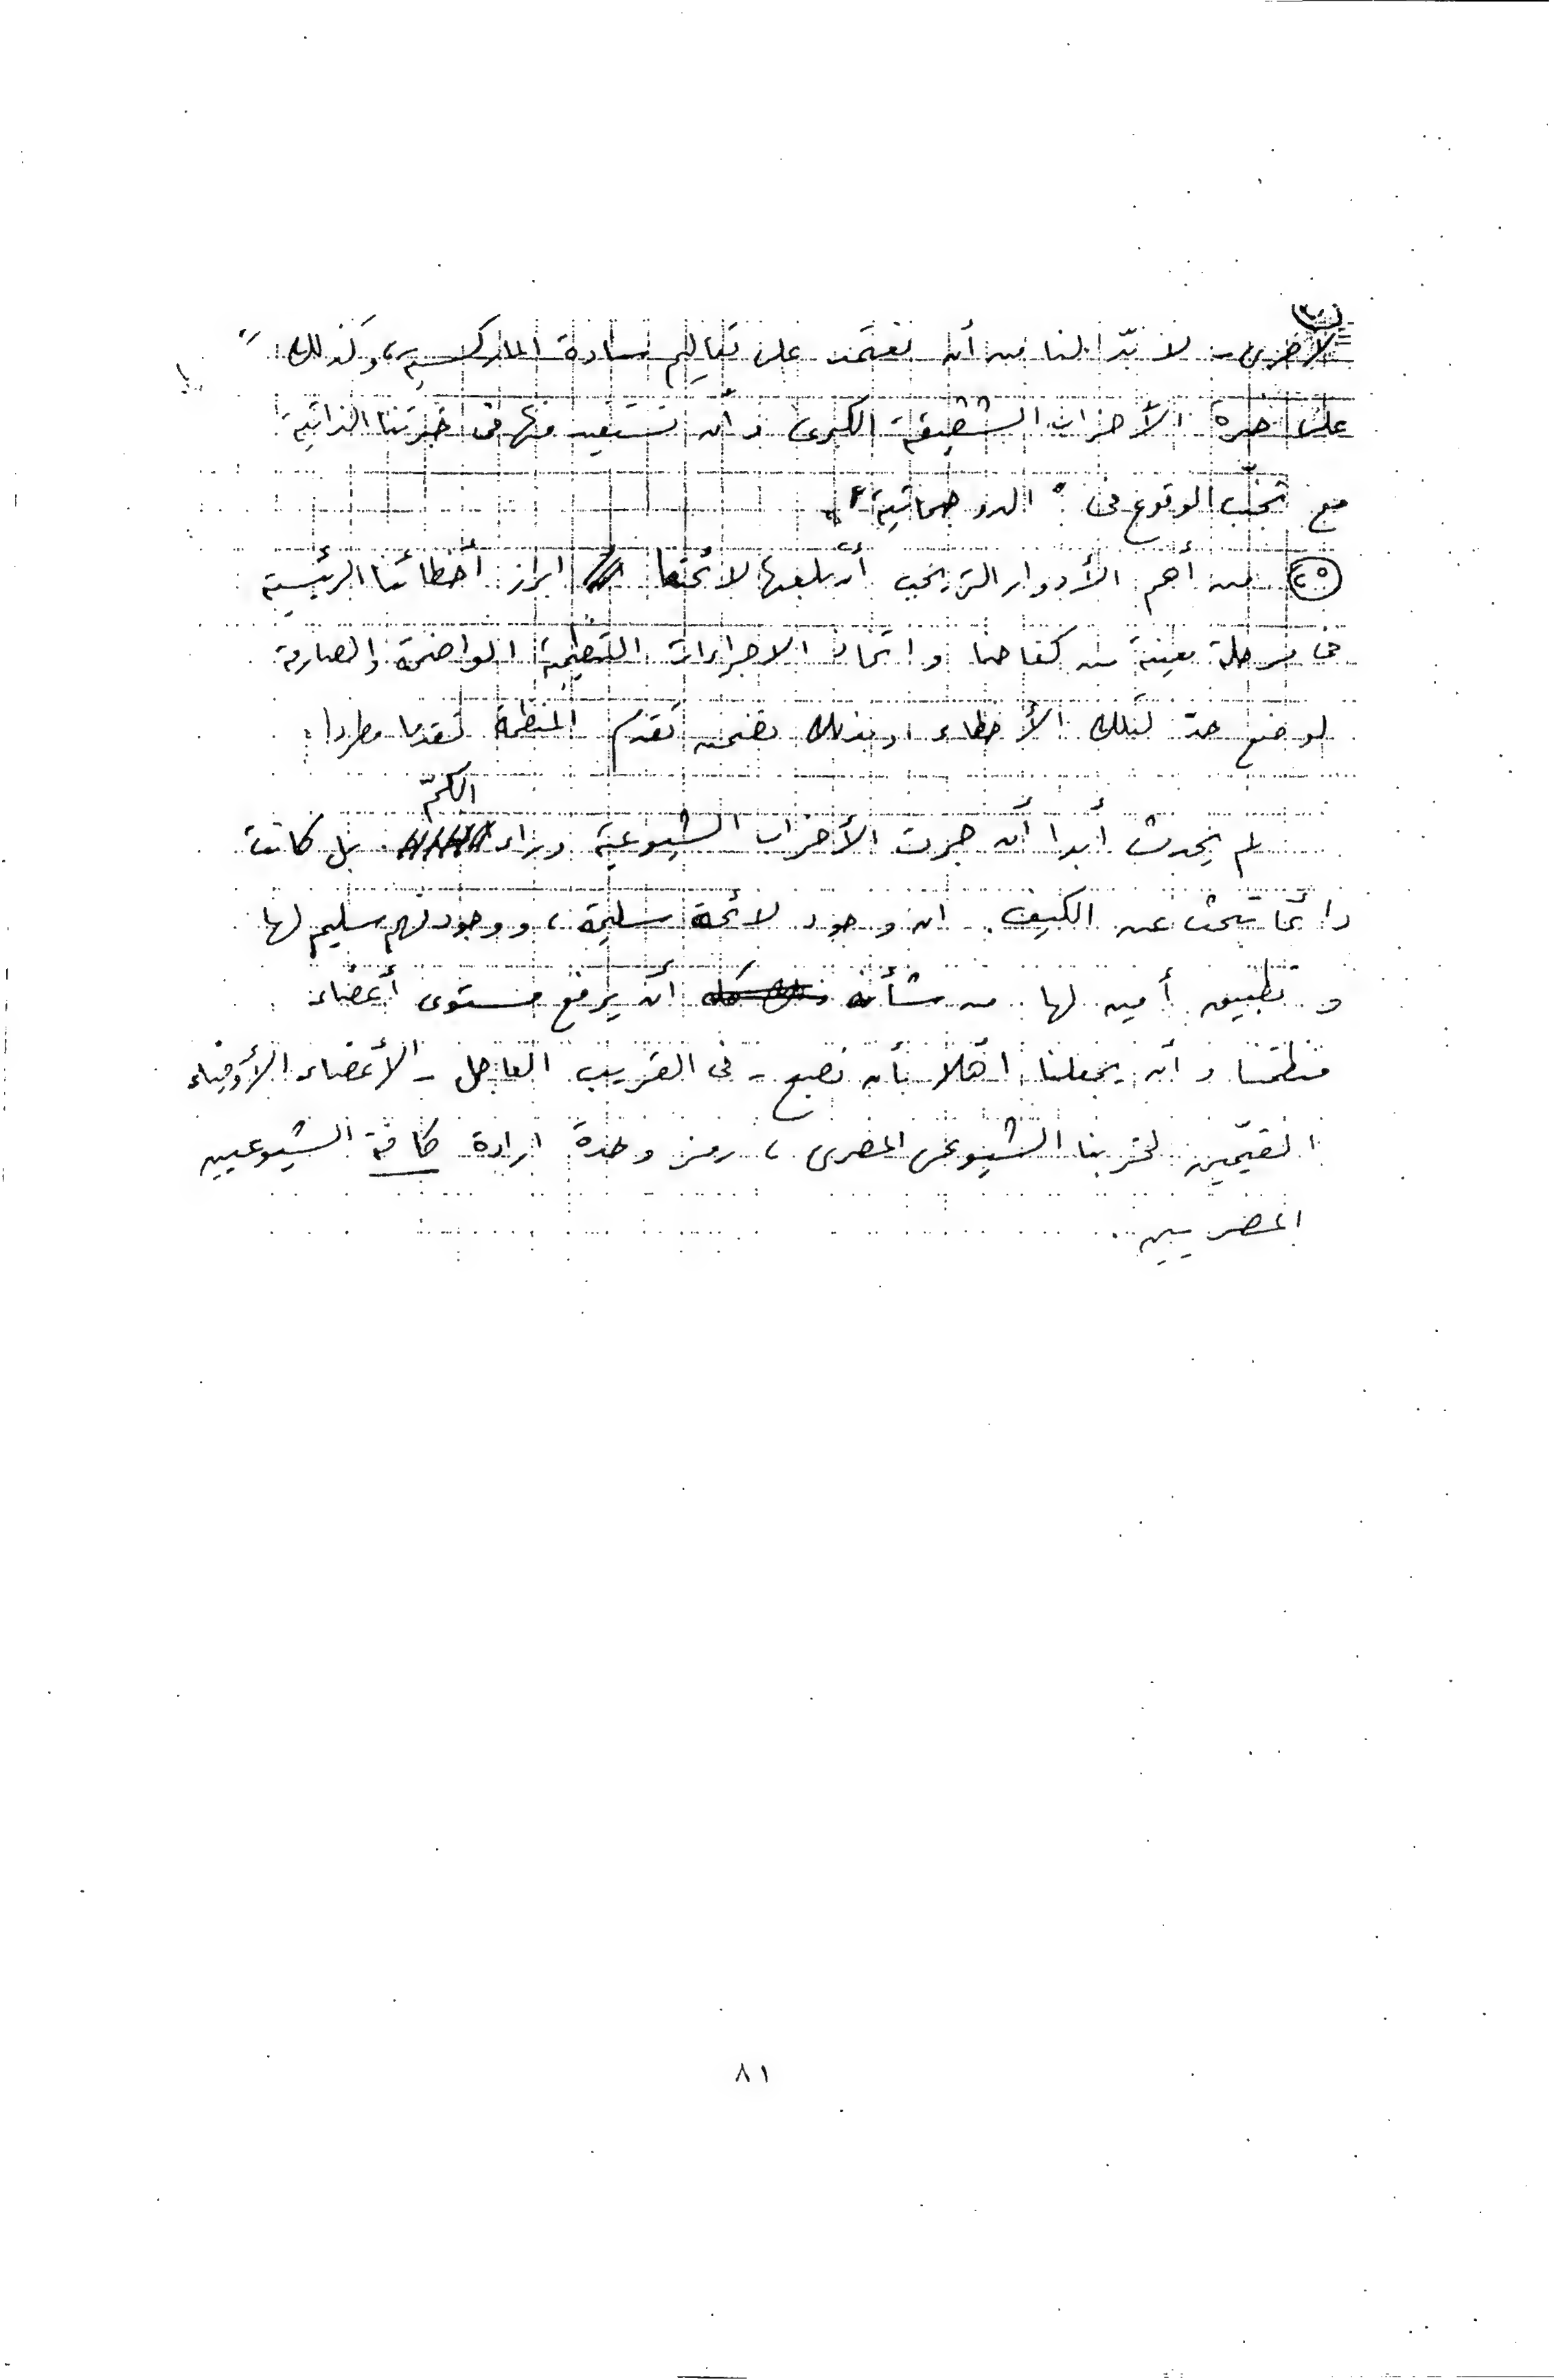 الأخرى - لا بدّ لنا من أن نعتمد على تعاليم سادة الماركسية، وكذلك
على خبرة الأحزاب الشقيقة الكبرى وأن نستفيد منها فى خبرتنا الذاتية
مع تجنّب الوقوع فى " الدوجماتية ".
٢٥ من أهم الأدوار التى يجب أن تلعبها لائحتنا ابراز أخطائنا الرئيسية
فى مرحلة معينة من كفاحنا واتخاذ الاجراءات التنظيمية الواضحة والصارمة
لوضع حدّ لتلك الأخطاء وبذلك نضمن تقدم المنظمة تقدما مطردا.
لم يحدث أبدا أن جرت الأحزاب الشيوعية وراء الكمّ بل كانت
دائما تبحث عن الكيف. ان وجود لائحة سليمة، ووجود فهم سليم لها
و تطبيق أمين لها من شأنه أن يرفع مستوى أعضاء
منظمتنا وأن يجعلنا أهلا بأن نصبح - فى القريب العاجل - الأعضاء الأوفياء
القيّمين لحزبنا الشيوعى المصرى، رمز وحدة ارادة كافة الشيوعيين
المصريين.
٨١